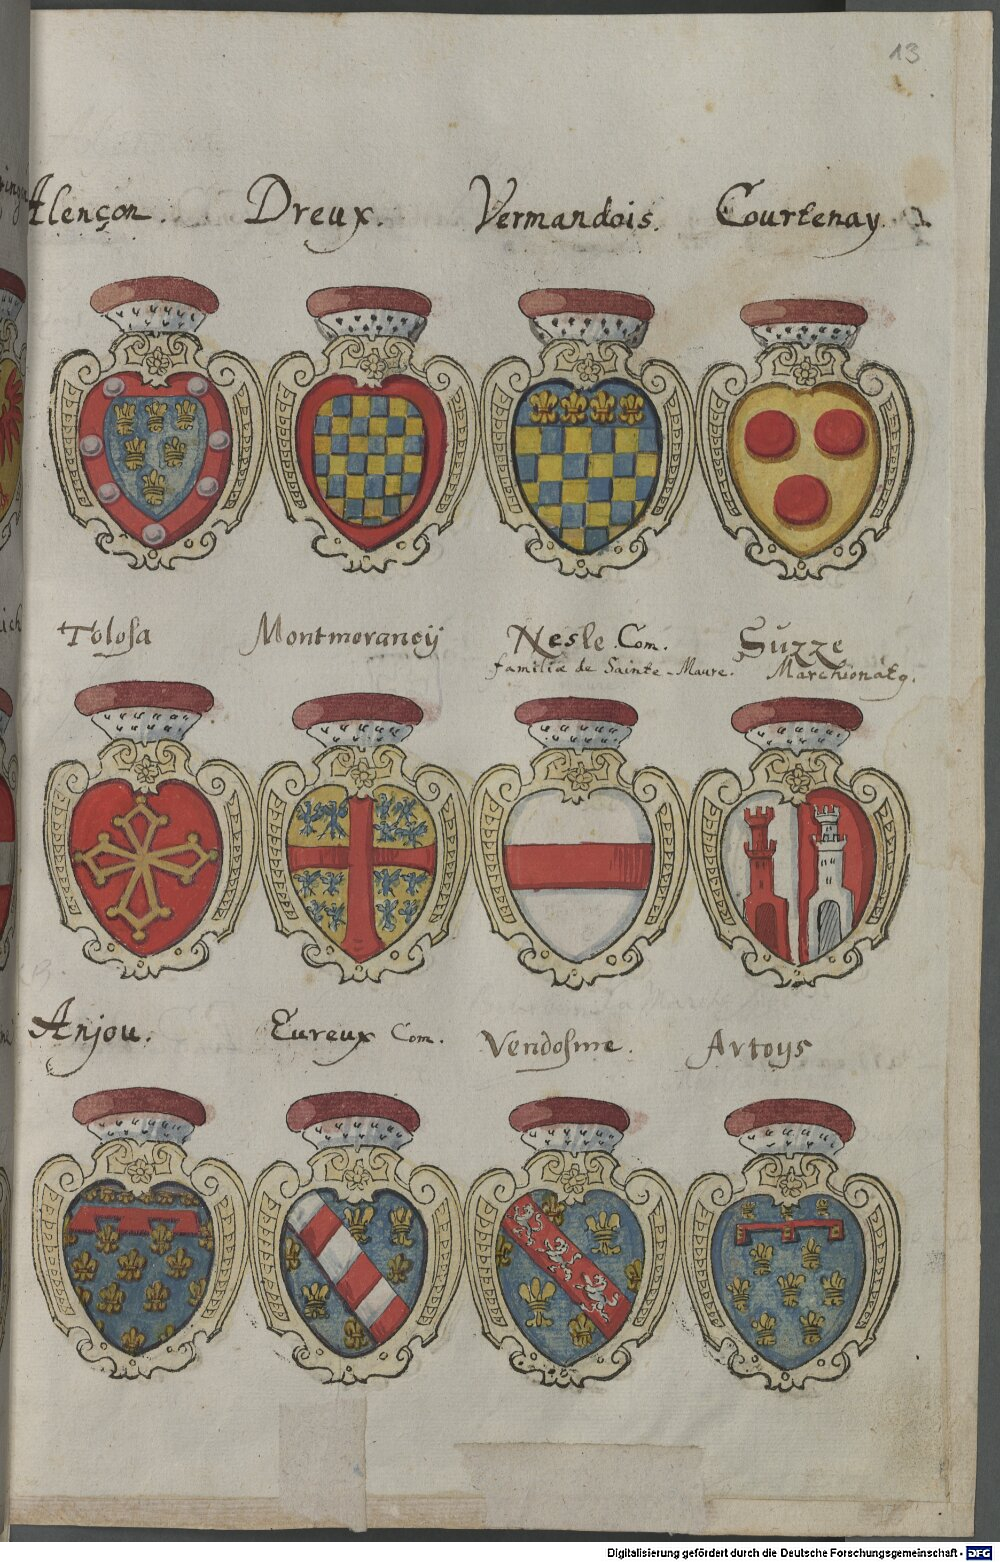 13
Alençon. Dreux. Vermandois. Courtenay.
Tolosa Montmorancÿ Nesle Com. Suzze
familia de Sainte-Maure. Marchionatq.
Anjou. Eureux Com. Vendosme. Artoys
Digitalisierung gefördert durch die Deutsche Forschungsgemeinschaft - DFG